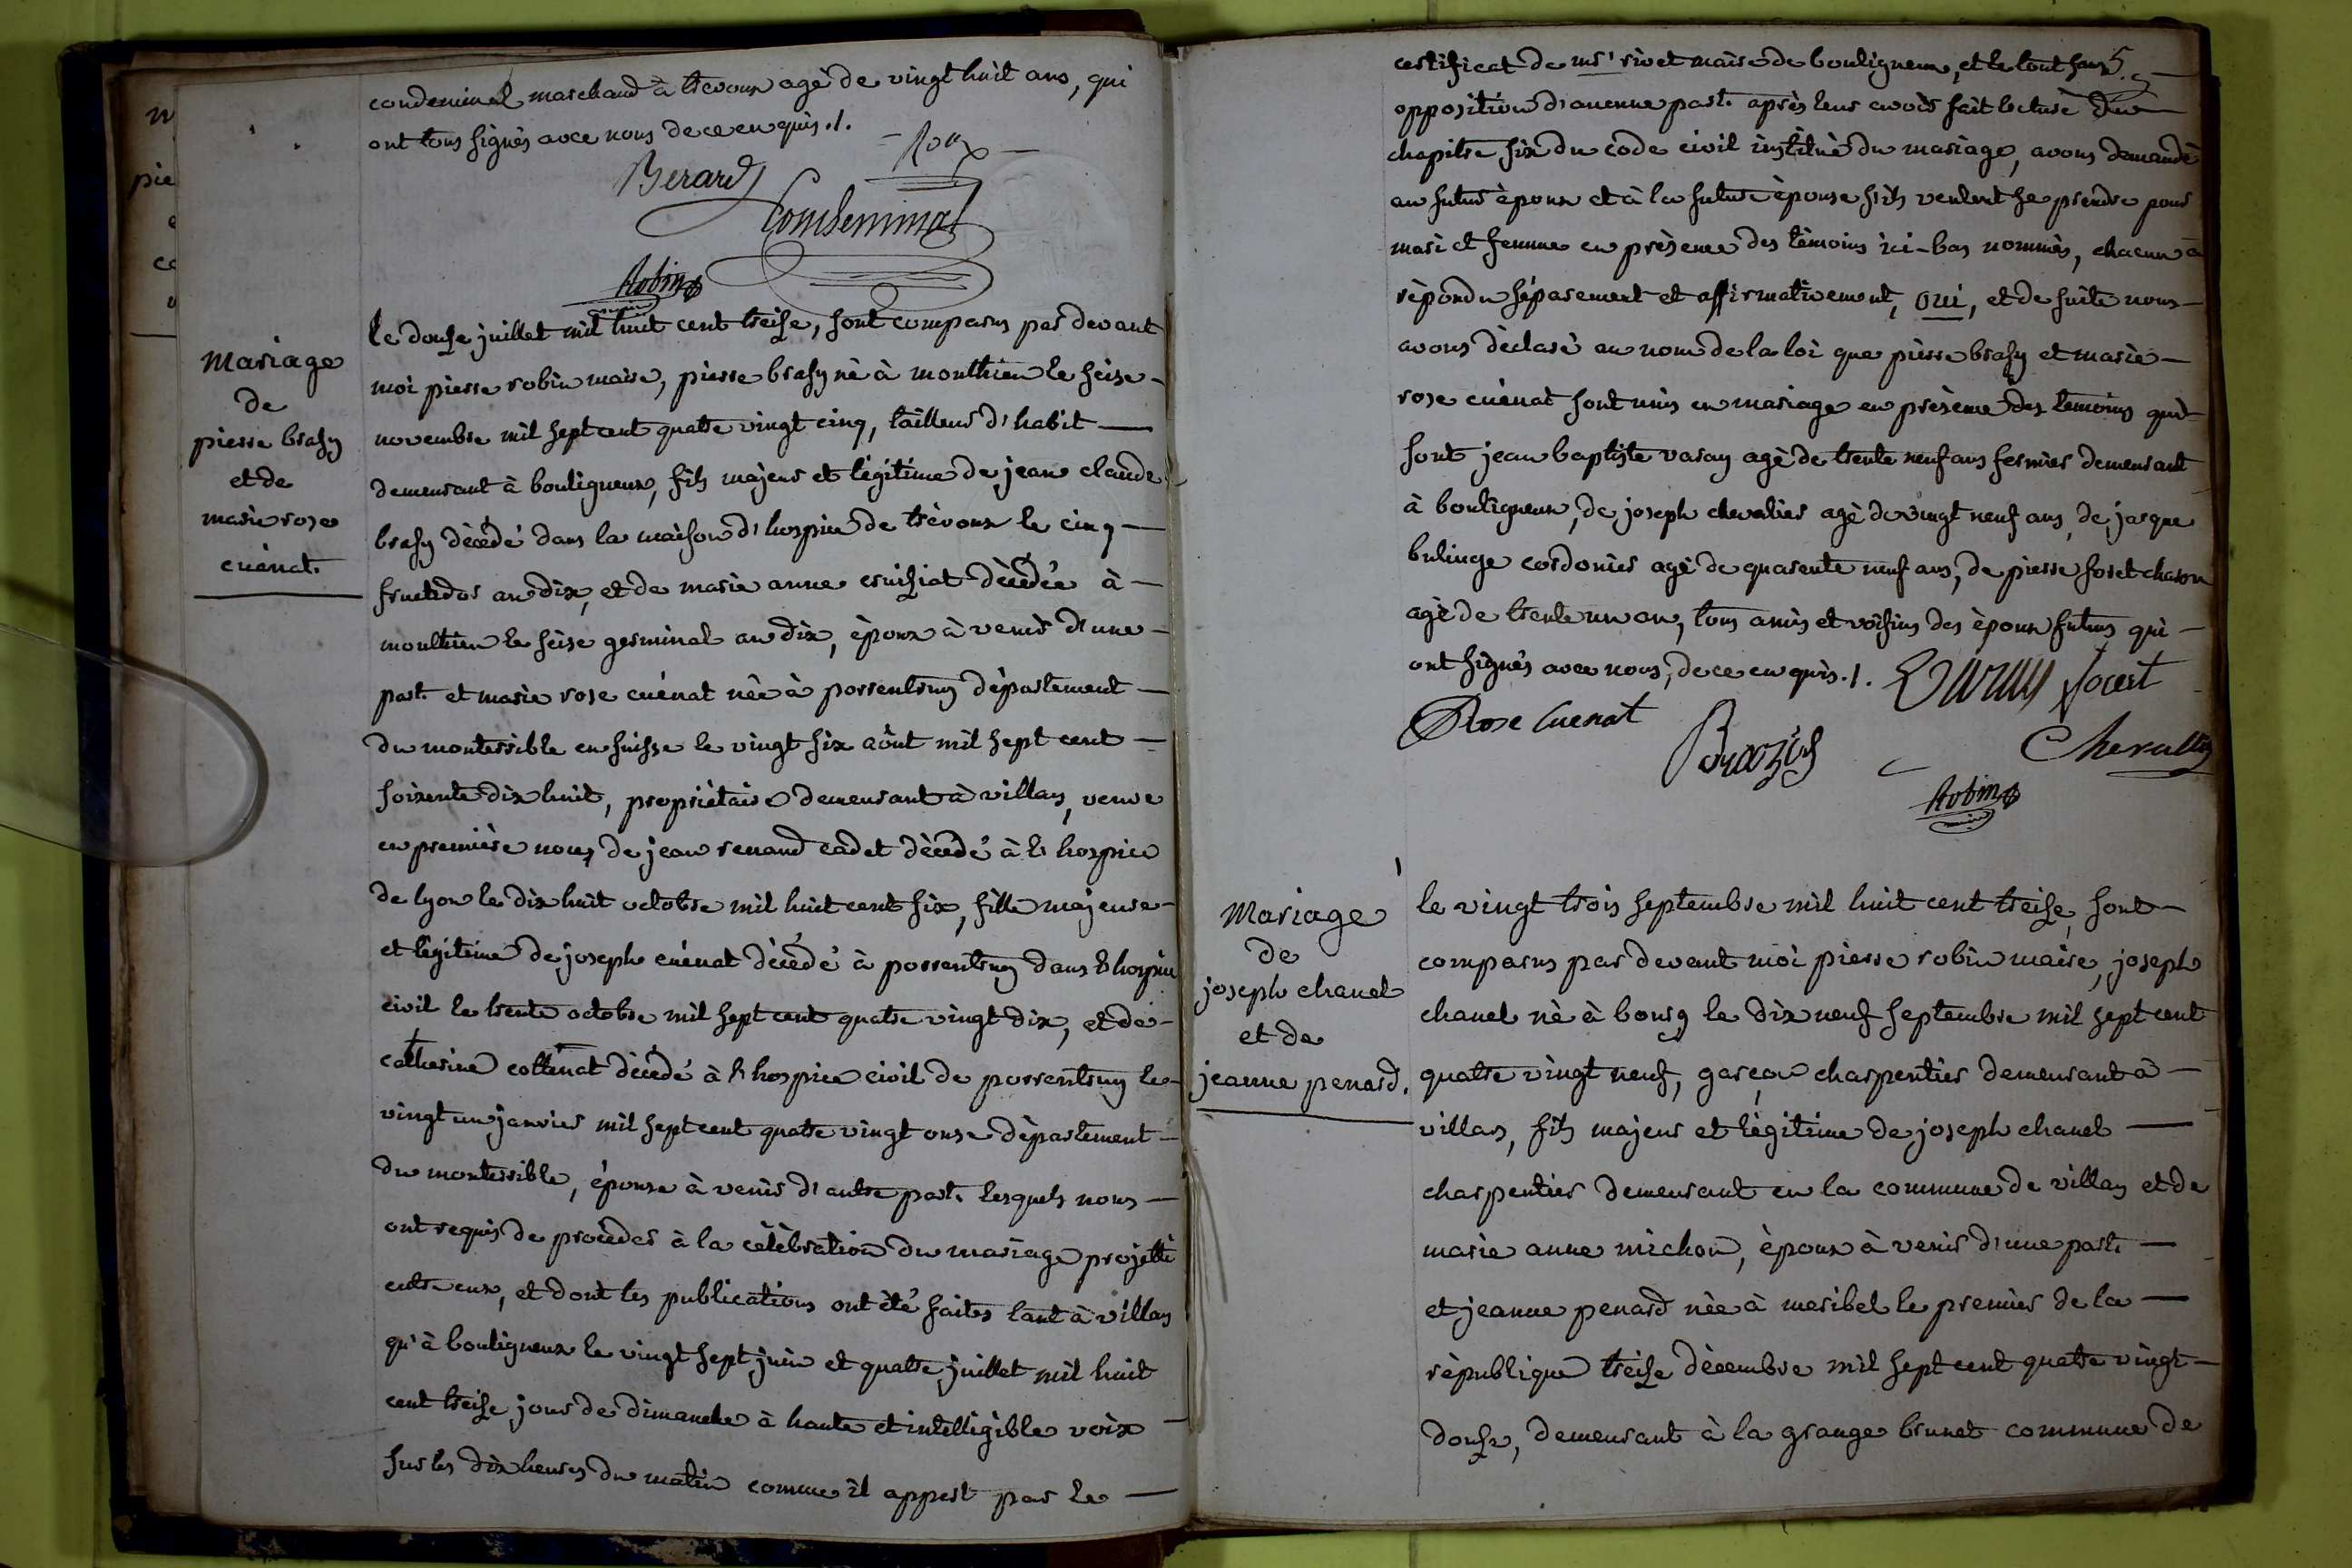 condeminal marchand à trevoux agè de vingt huit ans, qui
ont tous signès avec nous de ce enquis ./.
Roux
Berard
Comdeminal
Robin
maire
Mariage
de
pierre brasy
et de
marie rose
cuénat.
le douse juillet mil huit cent treise, sont comparus par devant
moi pierre robin maire, pierre brasy nè à monthieu le seise
novembre mil sept cent quatre vingt cinq, tailleur d'habit
demeurant à bouligneux, fils majeur et légitime de jean claude
brasy dècédé dans la maison d'hospice de trèvoux le cinq
fructidor an dix, et de marie anne cruisiat dècèdée à
monthieu le seise germinal an dix, époux à venir d'une
part. et marie rose cuénat née à porrentruy département
du monterrible en suisse le vingt six aôut mil sept cent
soixente dix huit, propriètaire demeurant à villars, veuve
en première noces de jean renaud cadet dècédé à l'hospice
de lyon le dix huit octobre mil huit cent six, fille majeure
et légitime de joseph cuénat dècédé à porrentruy dans l'hospice
civil le trente octobre mil sept cent quatre vingt dix, et de
catherine cottenat dècédé à l'hospice civil de porrentruy le
vingt un janvier mil sept cent quatre vingt onze département
du monterrible, épouse à venir d'autre part. lesquels nous
ont requis de procéder à la célèbration du mariage projetté
entre eux, et dont les publications ont été faites tant à villars
qu'à bouligneux le vingt sept juin et quatre juillet mil huit
cent treise jour de dimanche à haute et intelligible voix
sur les dix heures du matin comme il appert par le
5.
certificat de mr. rivet maire de bouligneux, et le tout sans
opposition d'aucune part. après leur avoir fait lecture du
chapitre six du code civil institué du mariage, avons demandè
au futur époux et à la future épouse s'ils veulent se prendre pour
mari et femme en présence des tèmoins ici-bas nommès, chacun à
répondu séparement et affirmativement, oui, et de suite nous
avons dèclaré au nom de la loi que pierre brasy et marie
rose cuénat sont unis en mariage en présence des temoins qui
sont jean baptiste varay agè de trente neuf ans fermier demeurant
à bouligneux, de joseph chevalier agè de vingt neuf ans, de jacque
bulinge cordonier agè de quarente neuf ans, de pierre foret charon
agè de trente un an, tous amis et voisins des époux futurs qui
ont signès avec nous, de ce enquis ./. Varay
Rose Cuenat
Brazis
Chevallier
Robin
maire
Mariage
de
joseph chanel
et de
jeanne penard.
le vingt trois septembre mil huit cent treise, sont
comparus par devant moi pierre robin maire, joseph
chanel nè à bourg le dix neuf septembre mil sept cent
quatre vingt neuf, garçon charpentier demeurant à
villars, fils majeur et légitime de joseph chanel
charpentier demeurant en la commune de villars et de
marie anne michon, époux à venir d'une part.
et jeanne penard née à meribel le premier de la
république treise décembre mil sept cent quatre vingt
douse, demeurant à la grange brunet commune de